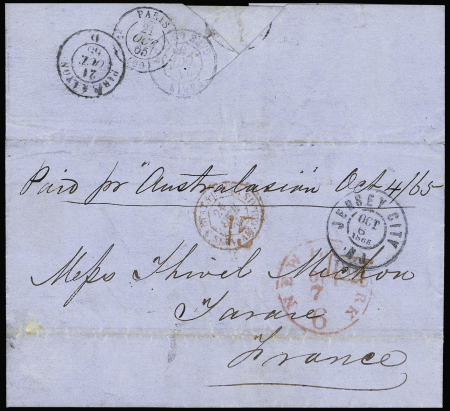 PARIS
21
OCT
65
PARIS A LYON
21
OCT
65
D
Paid pr "Australasian" Oct 4/65
15
JERSEY CITY
OCT
6
1865
N.J.
NEW YORK
7
Messrs Thivel Michon
Tarare
France